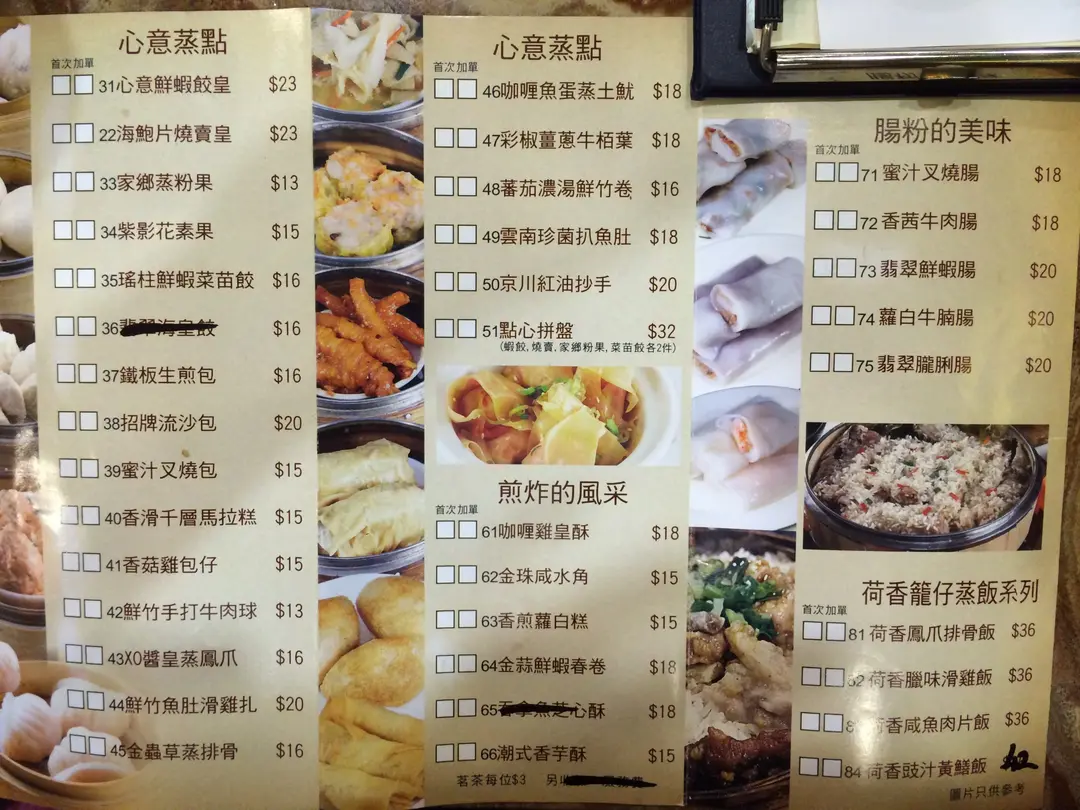 心意蒸點
首次加單
31心意鮮蝦餃皇 $23
22海鮑片燒賣皇 $23
33家鄉蒸粉果 $13
34紫影花素果 $15
35瑤柱鮮蝦菜苗餃 $16
36 $16
37鐵板生煎包 $16
38招牌流沙包 $20
39蜜汁叉燒包 $15
40香滑千層馬拉糕 $15
41香菇雞包仔 $15
42鮮竹手打牛肉球 $13
43XO醬皇蒸鳳爪 $16
44鮮竹魚肚滑雞扎 $20
45金蟲草蒸排骨 $16
心意蒸點
首次加單
46咖喱魚蛋蒸土魷 $18
47彩椒薑蔥牛栢葉 $18
48蕃茄濃湯鮮竹卷 $16
49雲南珍菌扒魚肚 $18
50京川紅油抄手 $20
51點心拼盤 $32
(蝦餃,燒賣,家鄉粉果,菜苗餃各2件)
煎炸的風采
首次加單
61咖喱雞皇酥 $18
62金珠咸水角 $15
63香煎蘿白糕 $15
64金蒜鮮蝦春卷 $18
65 心酥 $18
66潮式香芋酥 $15
茗茶每位$3 另
腸粉的美味
首次加單
71 蜜汁叉燒腸 $18
72 香茜牛肉腸 $18
73 翡翠鮮蝦腸 $20
74 蘿白牛腩腸 $20
75 翡翠朧脷腸 $20
荷香籠仔蒸飯系列
首次加單
81 荷香鳳爪排骨飯 $36
82 荷香臘味滑雞飯 $36
8 荷香咸魚肉片飯 $36
84 荷香豉汁黃鱔飯
圖片只供參考